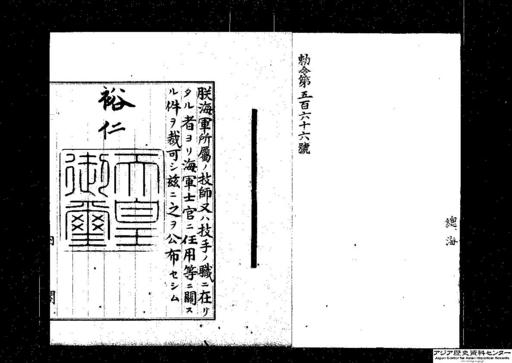 勅令第五百六十六號
總海
朕海軍所屬ノ技師又ハ技手ノ職ニ在リ
タル者ヨリ海軍士官ニ任用等ニ關ス
ル件ヲ裁可シ玆ニ之ヲ公布セシム
裕仁
天皇
御璽
アジア歴史資料センター
Japan Center for Asian Historical Records